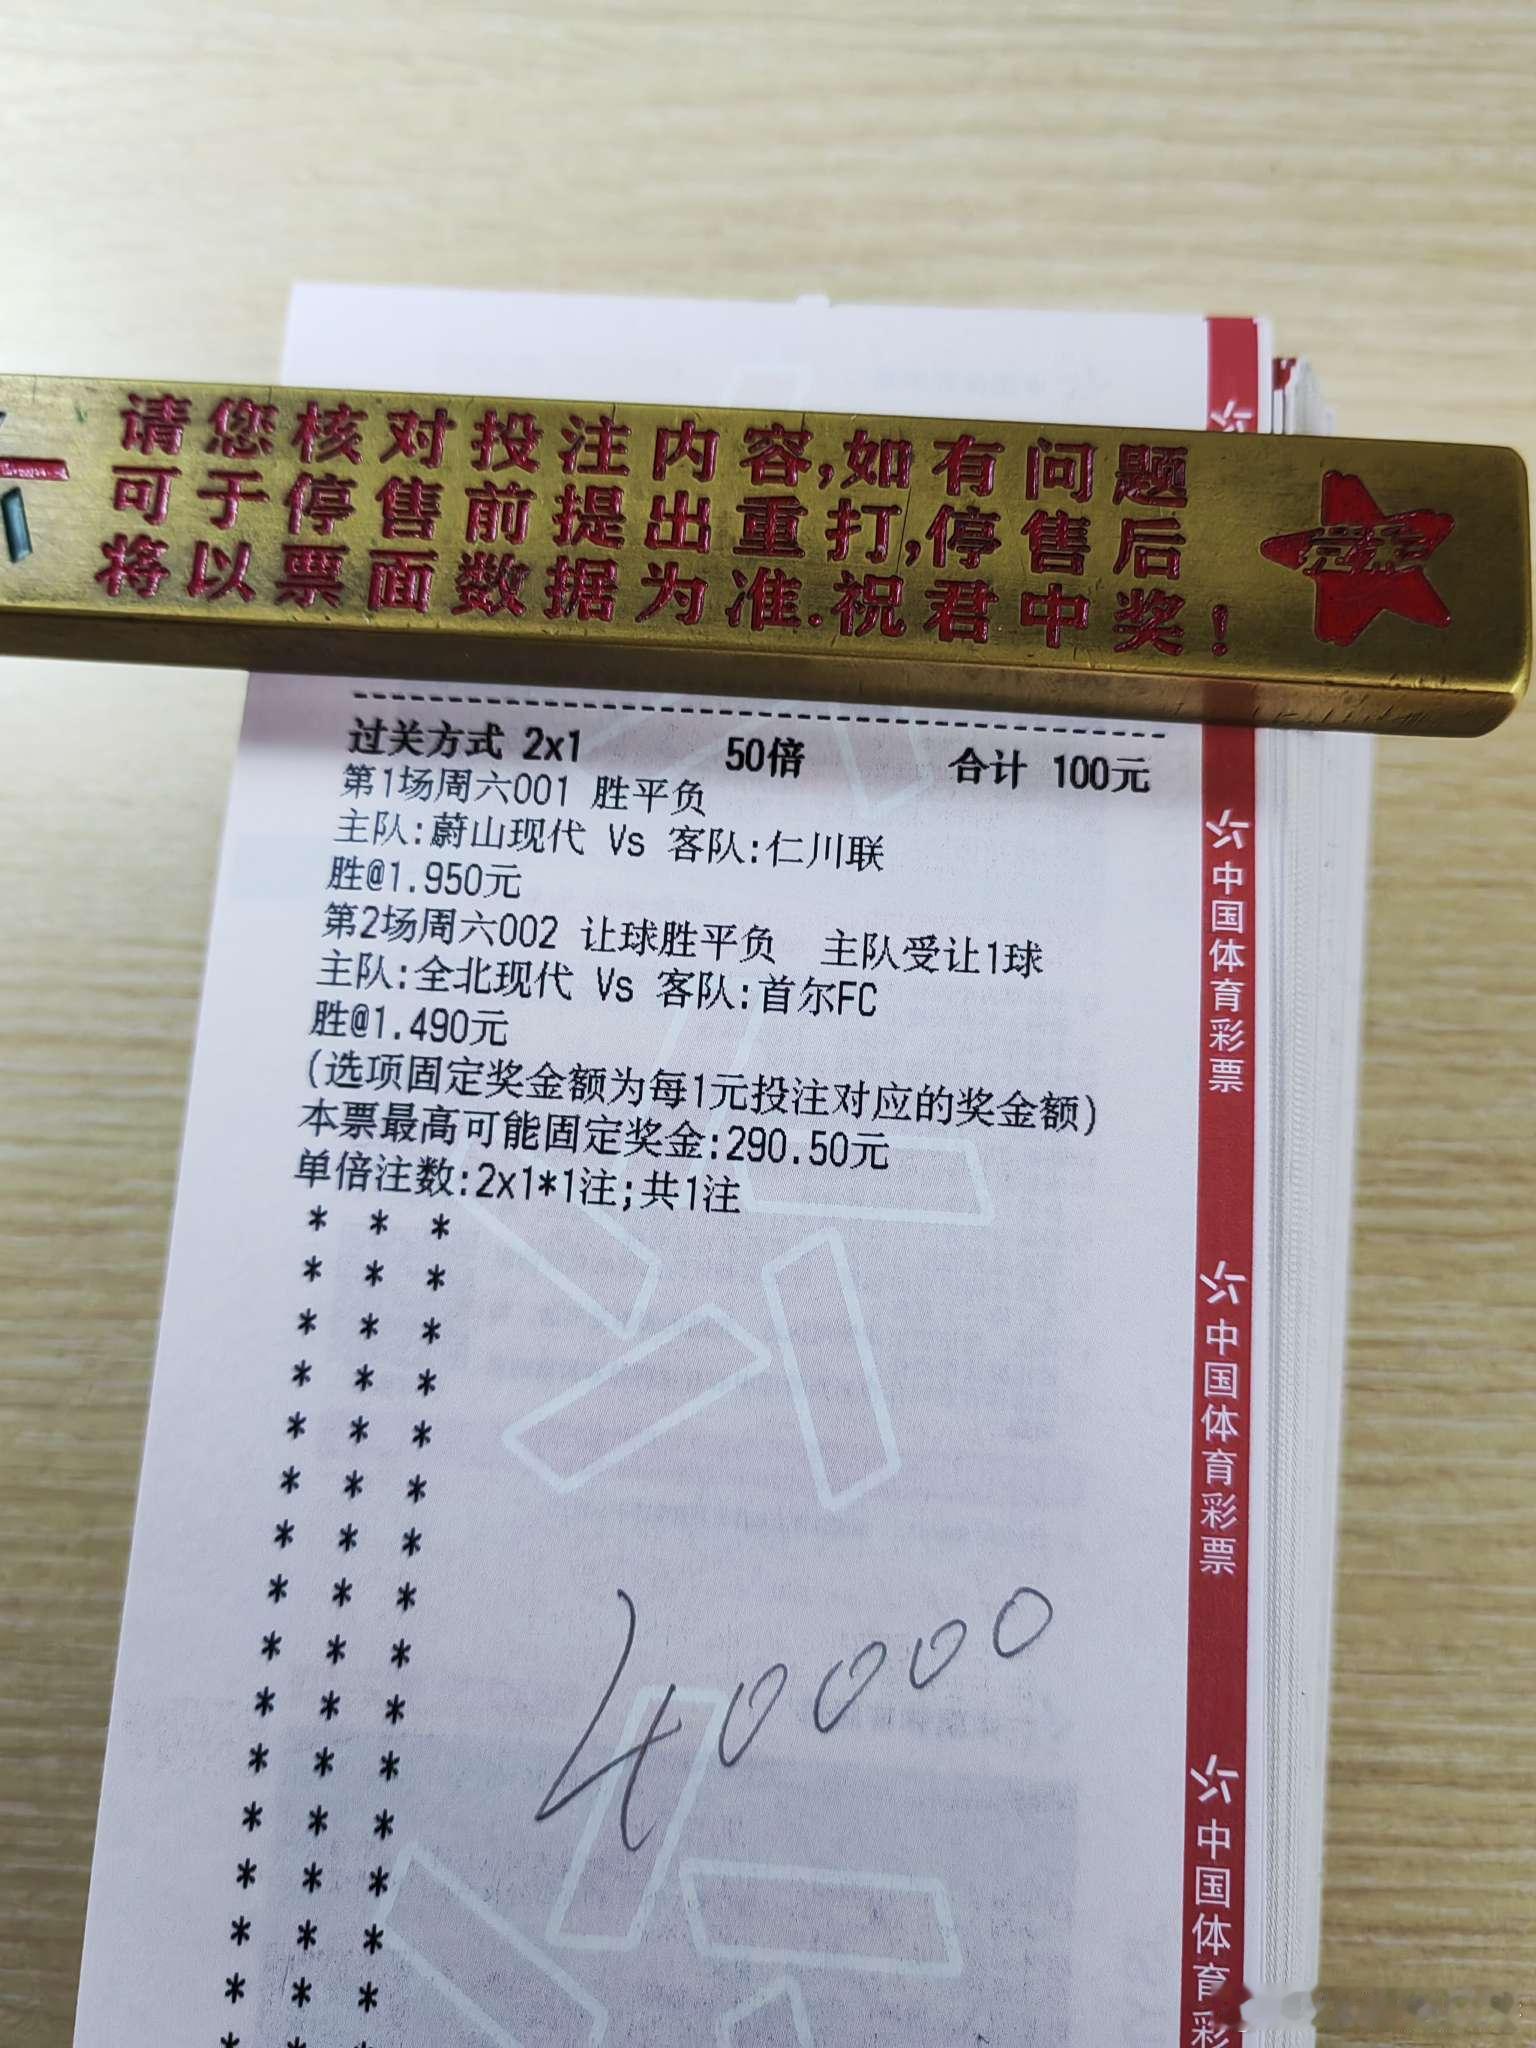 请您核对投注内容,如有问题
可于停售前提出重打,停售后
将以票面数据为准.祝君中奖!
过关方式 2x1 50倍 合计 100元
第1场周六001 胜平负
主队:蔚山现代 Vs 客队:仁川联
胜@1.950元
第2场周六002 让球胜平负 主队受让1球
主队:全北现代 Vs 客队:首尔FC
胜@1.490元
(选项固定奖金额为每1元投注对应的奖金额)
本票最高可能固定奖金:290.50元
单倍注数:2x1*1注;共1注
* * *
* * *
* * *
* * *
* * *
* * *
* * *
* * *
* * *
* * *
* * *
* * *
* * *
* * *
* * *
40000
中国体育彩票
中国体育彩票
中国体育彩